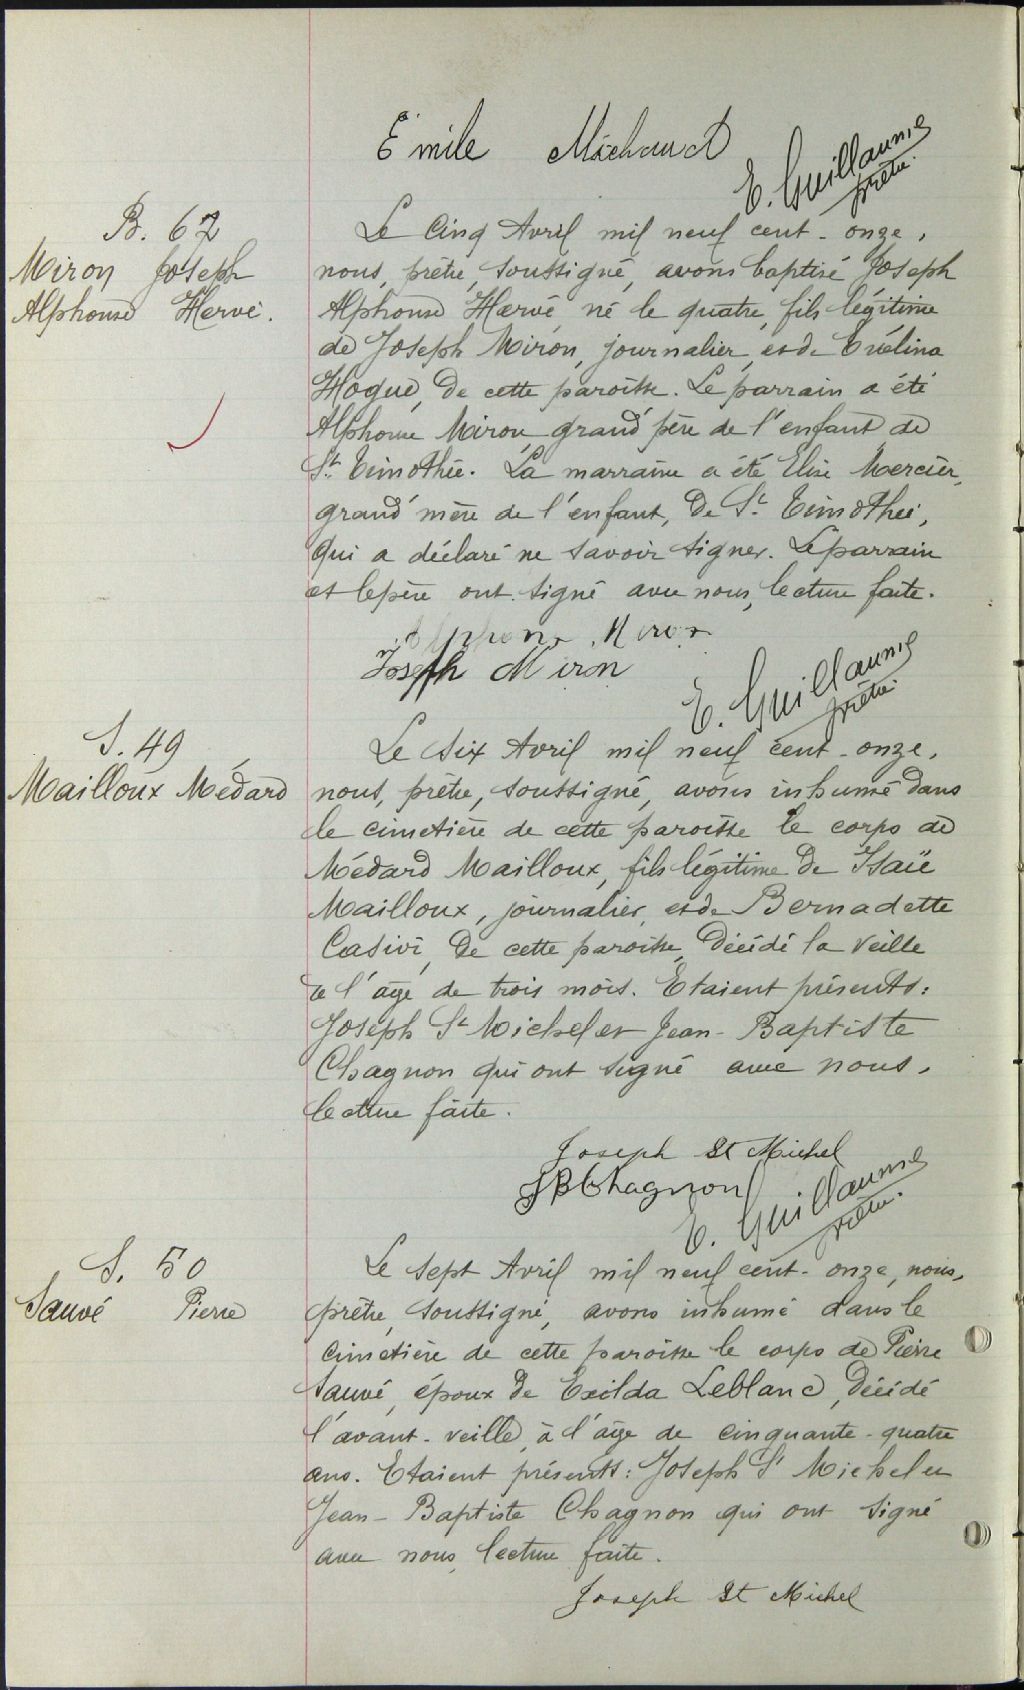 Emile Michaud
E. Guillaume
prêtre.
B. 62
Miron Joseph
Alphonse Hervé.
Le Cinq Avril mil neuf cent-onze,
nous, prêtre, soussigné, avons baptisé Joseph
Alphonse Hervé, né le quatre, fils légitime
de Joseph Miron, journalier, et de Evélina
Hogue, de cette paroisse. Le parrain a été
Alphonse Miron, grand'père de l'enfant, de
St. Timothée. La marraine a été Elise Mercier,
grand'mère de l'enfant, de St. Timothée,
qui a déclaré ne savoir signer. Le parrain
et le père ont signé avec nous, lecture faite.
Alphons Miron
Joseph Miron
E. Guillaume
prêtre.
S. 49
Mailloux Médard
Le Six Avril mil neuf cent-onze,
nous, prêtre, soussigné, avons inhumé dans
le cimetière de cette paroisse le corps de
Médard Mailloux, fils légitime de Isaïe
Mailloux, journalier, et de Bernadette
Casivi, de cette paroisse, décédé la veille
à l'âge de trois mois. Etaient présents:
Joseph St Michel et Jean-Baptiste
Chagnon qui ont signé avec nous,
lecture faite.
Joseph St Michel
JB Chagnon
E. Guillaume
prêtre.
S. 50
Sauvé Pierre
Le Sept Avril mil neuf cent-onze, nous,
prêtre, soussigné, avons inhumé dans le
cimetière de cette paroisse le corps de Pierre
Sauvé, époux de Exilda Leblanc, décédé
l'avant-veille, à l'âge de cinquante-quatre
ans. Etaient présents: Joseph St Michel et
Jean-Baptiste Chagnon qui ont signé
avec nous, lecture faite.
Joseph St Michel